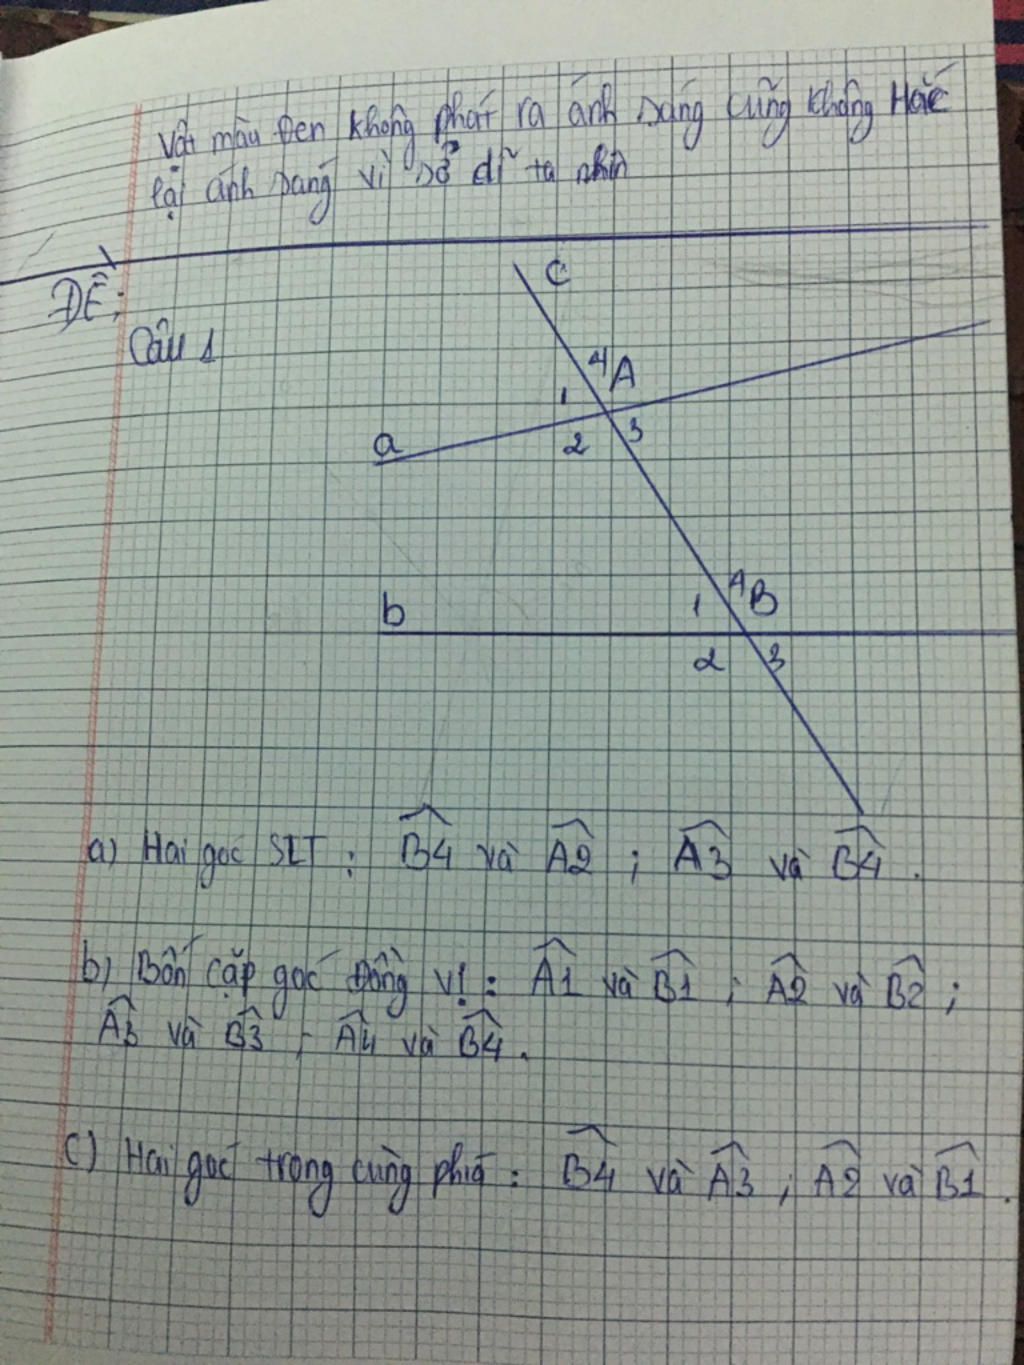 Vật màu đen không phát ra ánh sáng cũng không Hắc
lại ánh sáng vì sở dĩ ta nhìn
ĐỀ:
Câu 1
C
4 A
1
a
2 3
4 B
b 1
2 3
a) Hai góc SLT: B4 và A2 ; A3 và B4.
b) Bốn cặp góc đồng vị: A1 và B1 ; A2 và B2 ;
A3 và B3 ; A4 và B4.
c) Hai góc trong cùng phía: B4 và A3 ; A2 và B1.